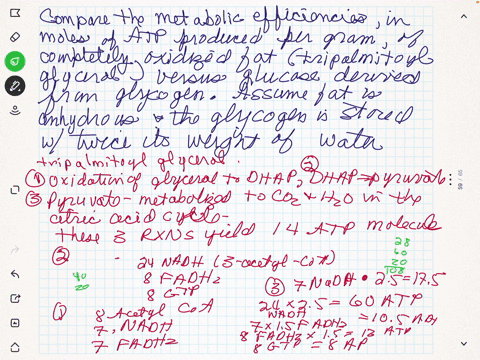 Compare the metabolic efficiencies, in
moles of ATP produced per gram, of
completely oxidized fat (tripalmitoyl
glycerol) versus glucose derived
from glycogen. Assume fat is
anhydrous & the glycogen is stored
w/ twice its weight of water
tripalmitoyl glycerol.
① Oxidation of glycerol to DHAP, ② DHAP → pyruvate
③ Pyruvate - metabolized to CO2 + H2O in the
citric acid cycle -
these 3 RXNS yield 14 ATP molecule
28
60
20
108
② - 24 NADH (3-acetyl-CoA)
40
20
8 FADH2
8 GTP
① 8 Acetyl CoA
7, NADH
7 FADH2
③ 7 NaDH • 2.5 = 17.5
24 x 2.5 = 60 ATP
NADH
7 x 1.5 FADH2 = 10.5
8 FADH2 x 1.5 = 12 ATP
8 GTP = 8 AP
69 / 95